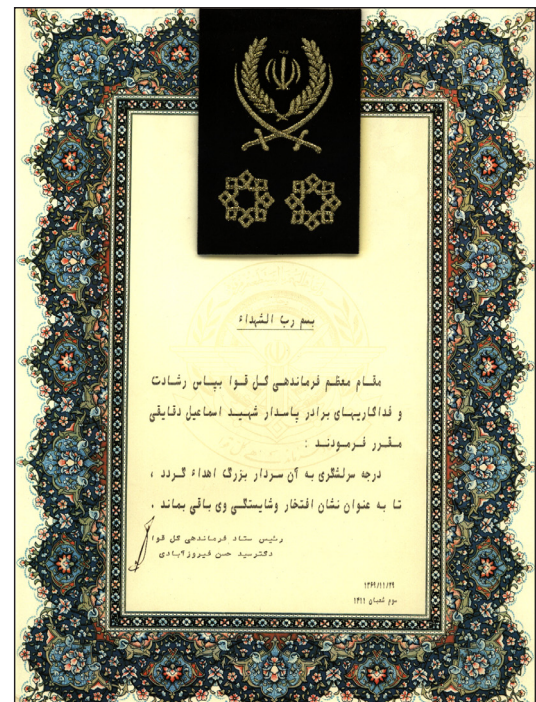 بسم رب الشهداء
مقام معظم فرماندهی کل قوا بپاس رشادت
و فداکاریهای برادر پاسدار شهید اسماعیل دقایقی
مقرر فرمودند :
درجه سرلشگری به آن سردار بزرگ اهداء گردد ،
تا به عنوان نشان افتخار وشایستگی وی باقی بماند .
رئیس ستاد فرماندهی کل قوا
دکترسید حسن فیروزآبادی
۱۳۶۹/۱۱/۲۹
سوم شعبان ۱۴۱۱